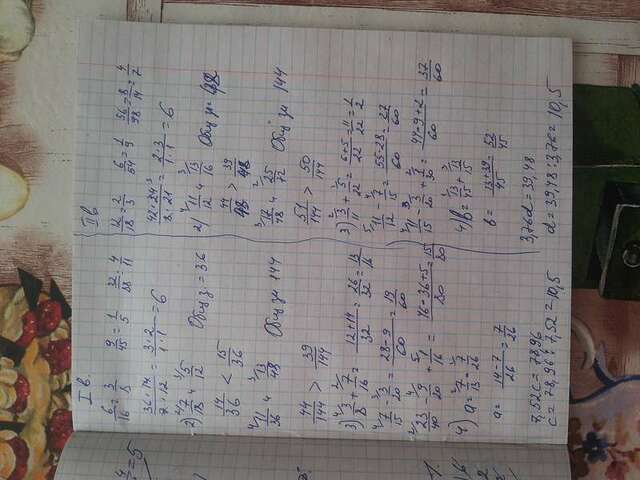 I в.
6/16 = 3/8   9/45 = 1/5   32/88 = 4/11
36·14/7·12 = 3·2/1·1 = 6
2) 7/18 и 5/12   Общ з. = 36
14/36 < 15/36
11/36 и 13/48   Общ зн 144
44/144 > 39/144
3) 3/8 + 7/16 = 12+14/32 = 26/32 = 13/16
7/15 - 3/20 = 28-9/60 = 19/60
23/40 - 9/20 + 1/16 = 46-36+5/80 = 15/80
4) a = 7/13 - 7/26
a = 14-7/26 = 7/26
7,52c = 78,96
c = 78,96 : 7,52 = 10,5
II в
12/18 = 2/3   6/54 = 1/9   56/98 = 8/14 = 4/7
42·24/8·21 = 2·3/1·1 = 6
2) 11/12 и 13/16   Общ зн = 48
44/48 > 39/48
17/48 и 25/72   Общ зн 144
51/144 > 50/144
3) 3/11 + 5/22 = 6+5/22 = 11/22 = 1/2
11/12 - 7/15 = 55-28/60 = 27/60
11/15 - 3/20 + 1/30 = 44-9+2/60 = 37/60
4) b = 13/45 + 13/15
b = 13+39/45 = 52/45
3,76d = 39,48
d = 39,48 : 3,76 = 10,5